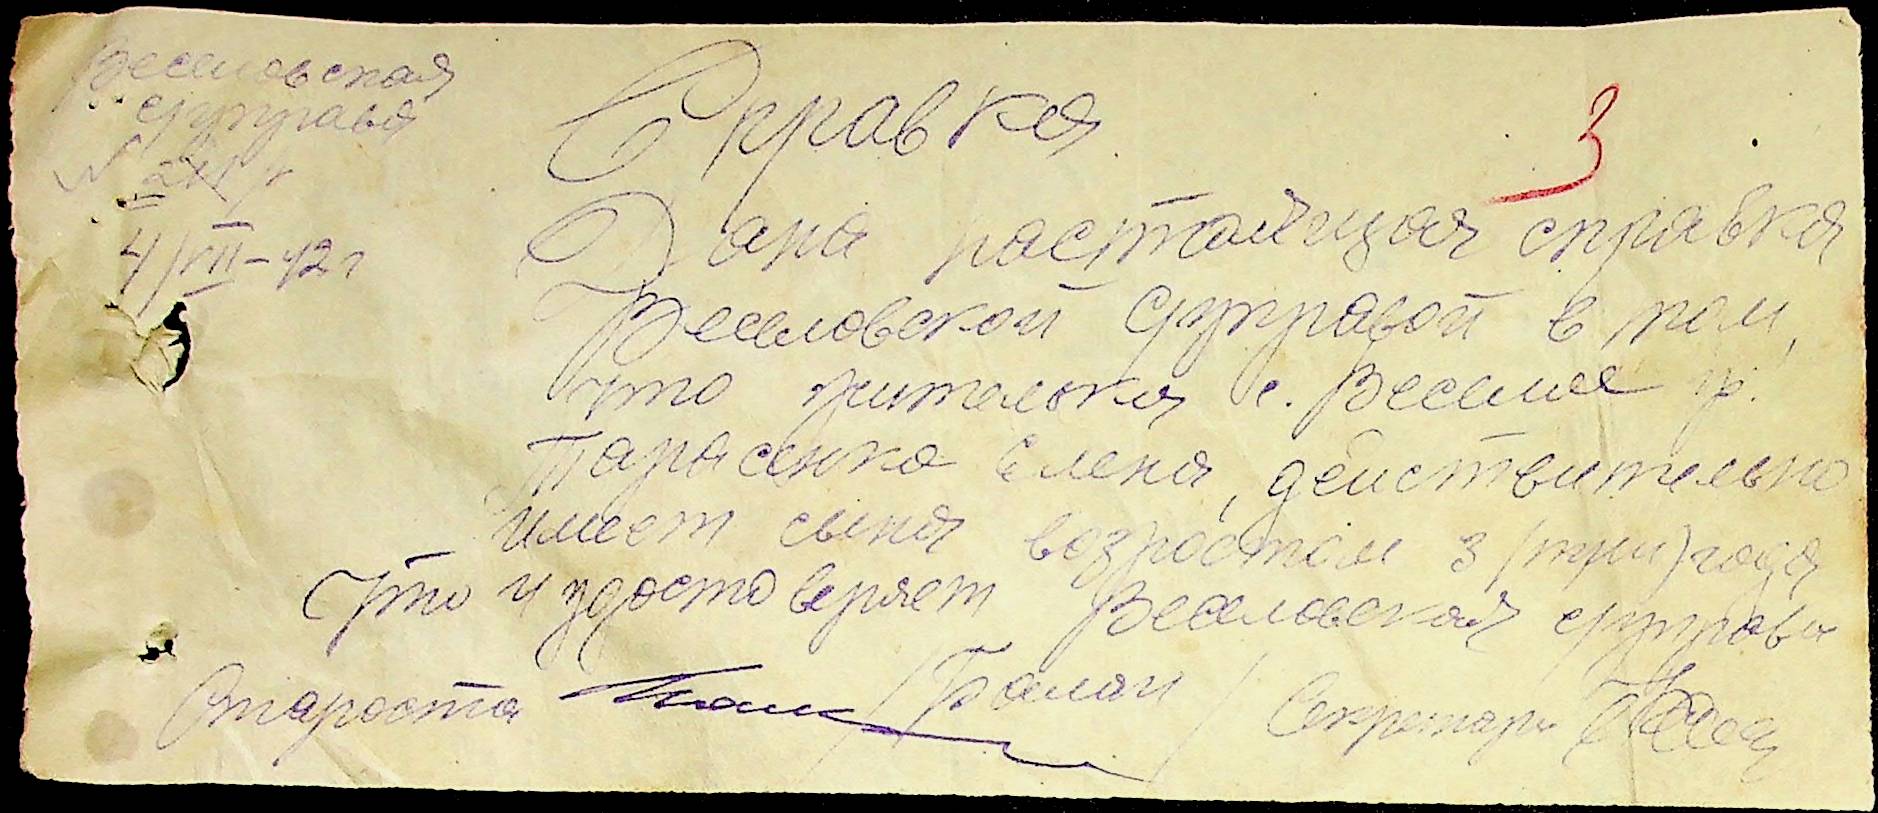 Веселовская
с/управа
№ 241
4/VIII-42 г
Справка
3
Дана настоящая справка
Веселовской с/управой в том,
что жителька с. Веселое гр.
Тарасенко Елена, действительно
имеет сына возростом 3 (три) года
Что и удостоверяет Веселовская с/управа
Староста / Балан / Секретарь